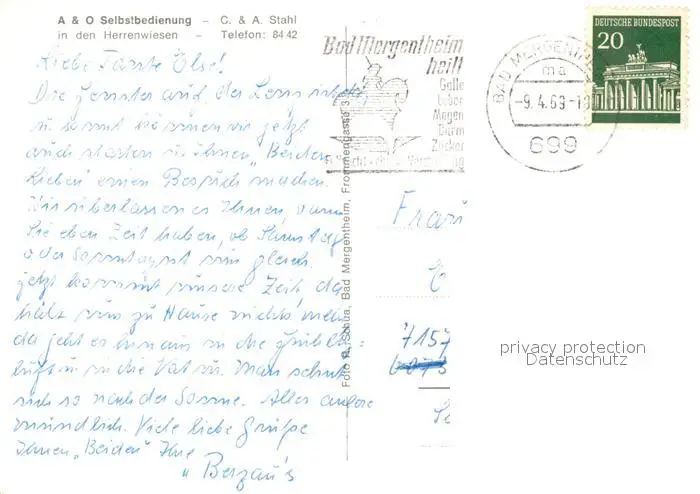 A & O Selbstbedienung – C. & A. Stahl
in den Herrenwiesen – Telefon: 84 42
Liebe Tante Else!
Die Fenster sind
u. somit können wir jetzt
auch starten u. Ihnen „Beiden
Lieben" einen Besuch machen.
Wir überlassen es Ihnen, wann
Sie eben Zeit haben, ob Samstag
oder Sonntag ist uns gleich.
Jetzt kommt unsere Zeit, da
hält uns zu Hause nichts mehr
da geht es hinaus in die Frühlings=
luft u. in die Natur. Man sehnt
sich so nach der Sonne. Alles andere
mündlich. Viele liebe Grüße
Ihnen „Beiden" Ihre
„Berzau's
Foto Schua, Bad Mergentheim, Frommengasse 3
Bad Mergentheim
heilt
Galle
Leber
Magen
Darm
Zucker
BAD MERGENTHEIM
ma
-9.4.69-18
699
DEUTSCHE BUNDESPOST
20
7157
privacy protection
Datenschutz